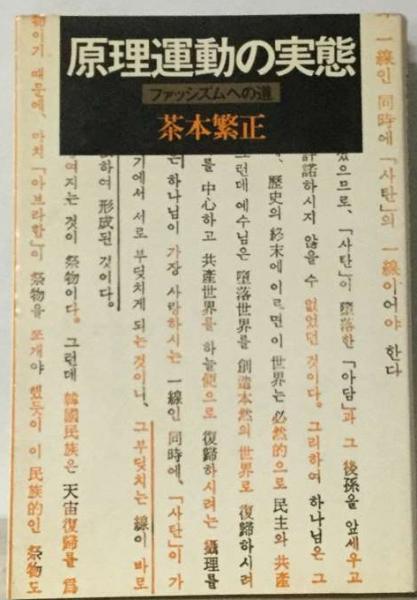 原理運動の実態
ファッシズムへの道
茶本繁正
一線인 同時에 「사탄」의 一線이어야 한다
으므로、「사탄」이 墮落한 「아담」과 그 後孫을 앞세우고
許諾하시지 않을 수 없었던 것이다。그리하여 하나님은 그
、歷史의 終末에 이르면 이 世界는 必然的으로 民主와 共產
그런데 예수님은 墮落世界를 創造本然의 世界로 復歸하시려
를 中心하고 共產世界를 하늘便으로 復歸하시려는 攝理를
는 하나님이 가장 사랑하시는 一線인 同時에、「사탄」이 가
기에서 서로 부딪치게 되는 것이니、그 부딪치는 線이 바로
하여 形成된 것이다。
여지는 것이 祭物이다。그런데 韓國民族은 天宙復歸를 爲
物이기 때문에、마치 「아브라함」이 祭物을 쪼개야 했듯이 이 民族的인 祭物도